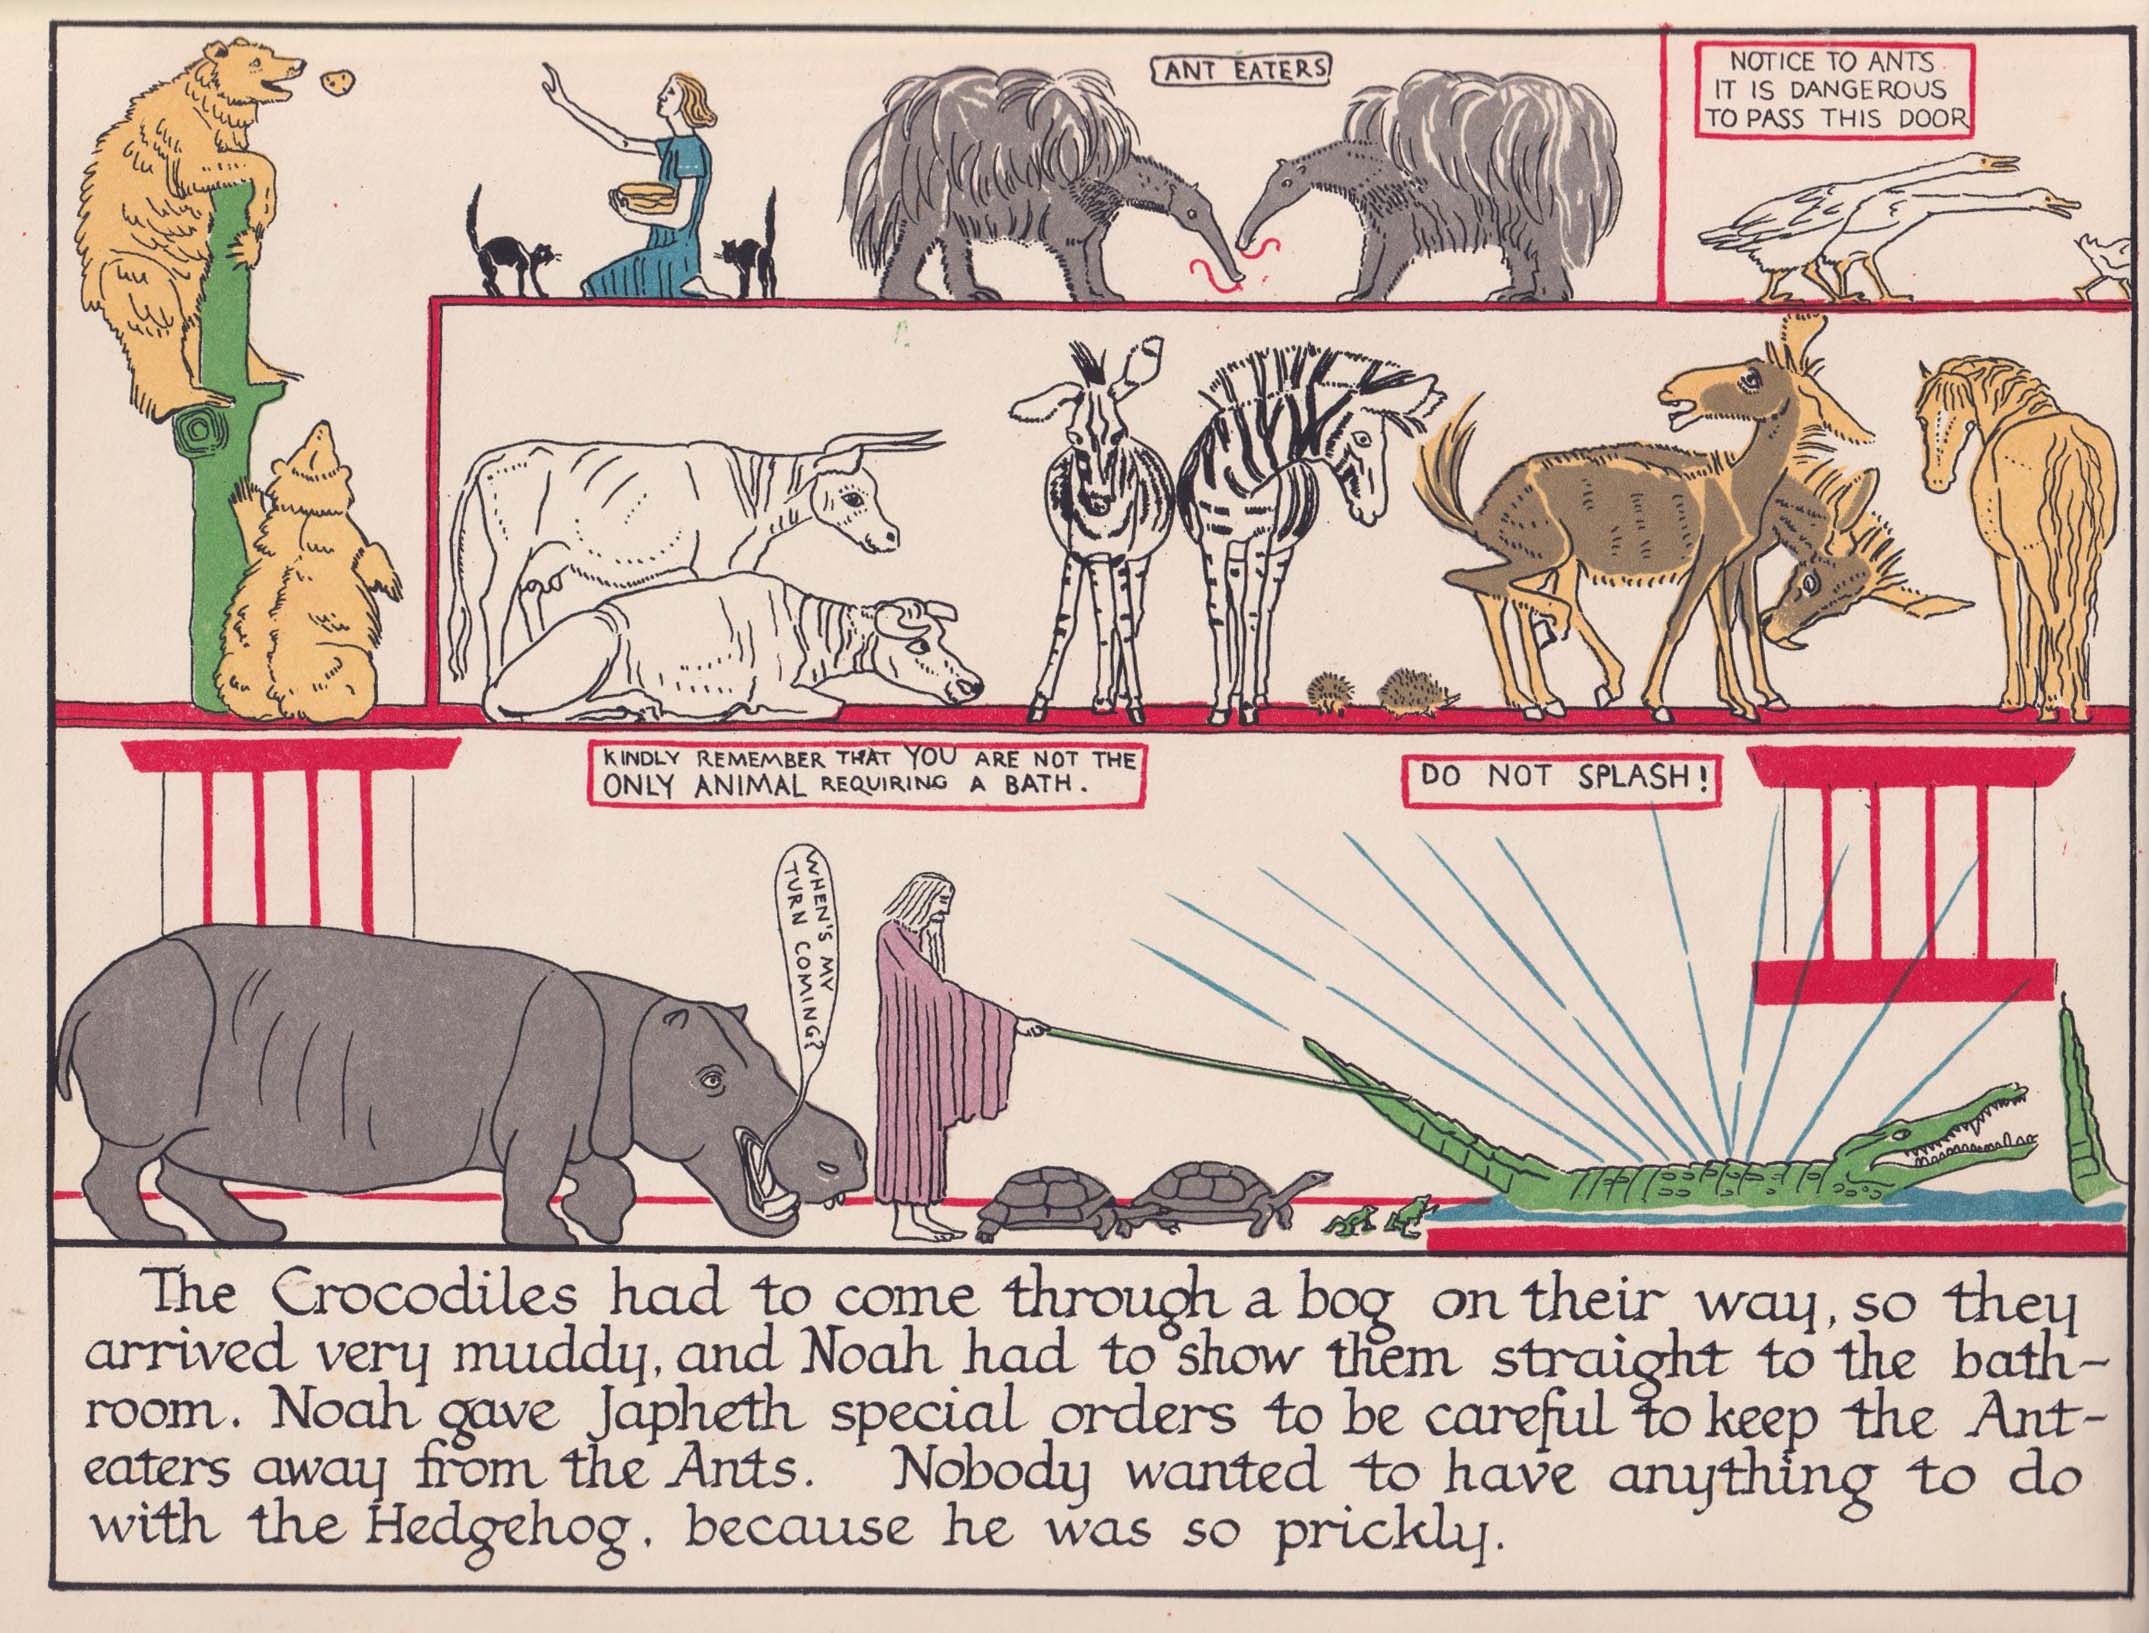 ANT EATERS
NOTICE TO ANTS
IT IS DANGEROUS
TO PASS THIS DOOR
KINDLY REMEMBER THAT YOU ARE NOT THE
ONLY ANIMAL REQUIRING A BATH.
DO NOT SPLASH!
WHEN'S MY
TURN COMING?
The Crocodiles had to come through a bog on their way, so they
arrived very muddy, and Noah had to show them straight to the bath-
room. Noah gave Japheth special orders to be careful to keep the Ant-
eaters away from the Ants. Nobody wanted to have anything to do
with the Hedgehog, because he was so prickly.